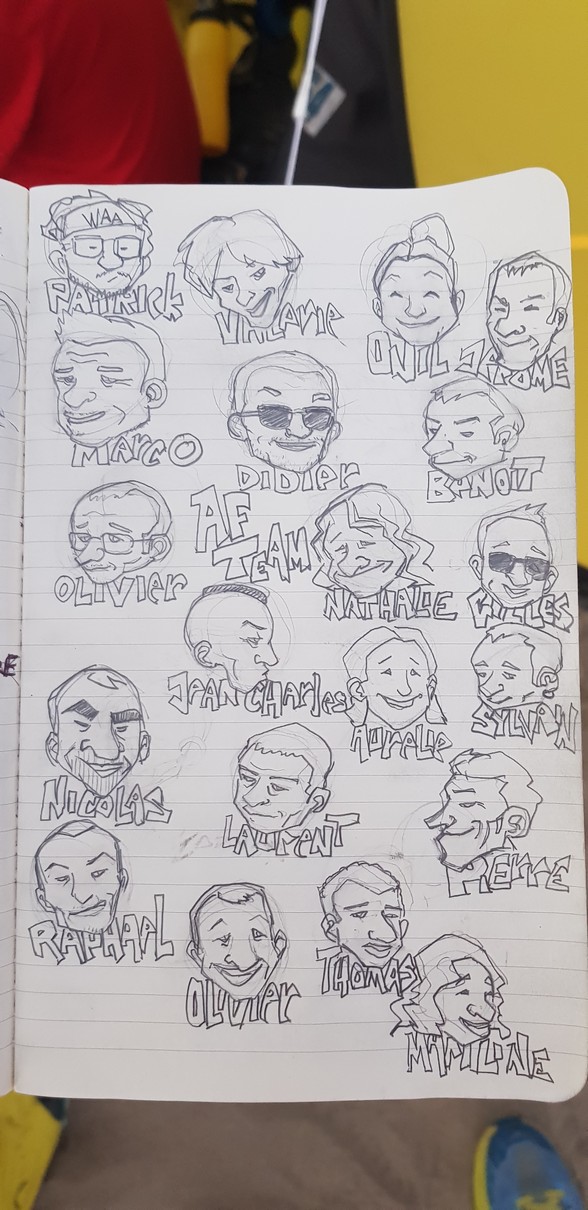 WAA
PATRICK
VALERIE
ONIL JEROME
MARCO
DIDIER
BENOIT
AF
TEAM
OLIVIER
NATHALIE
GILLES
JEAN CHARLES
AURELIE
SYLVAIN
NICOLAS
LAURENT
PIERRE
RAPHAEL
OLIVIER
THOMAS